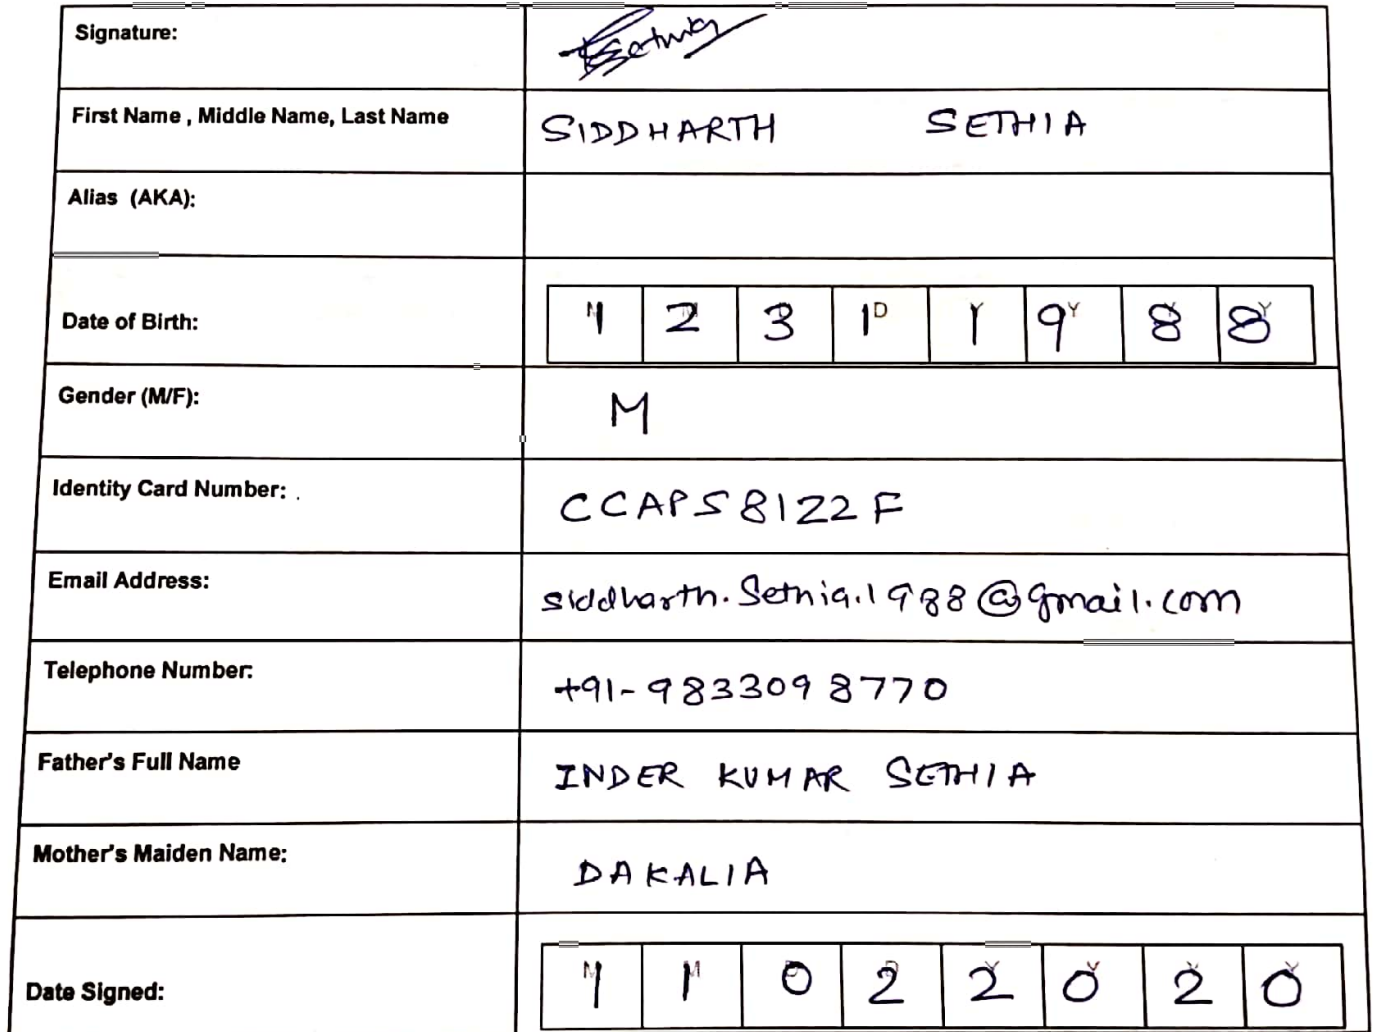 Signature:
First Name , Middle Name, Last Name SIDDHARTH SETHIA
Alias (AKA):
Date of Birth: 1 2 3 1 1 9 8 8
Gender (M/F): M
Identity Card Number: CCAPS8122F
Email Address: siddharth.Sethia.1988@gmail.com
Telephone Number: +91-9833098770
Father's Full Name INDER KUMAR SETHIA
Mother's Maiden Name: DAKALIA
Date Signed: 1 1 0 2 2 0 2 0